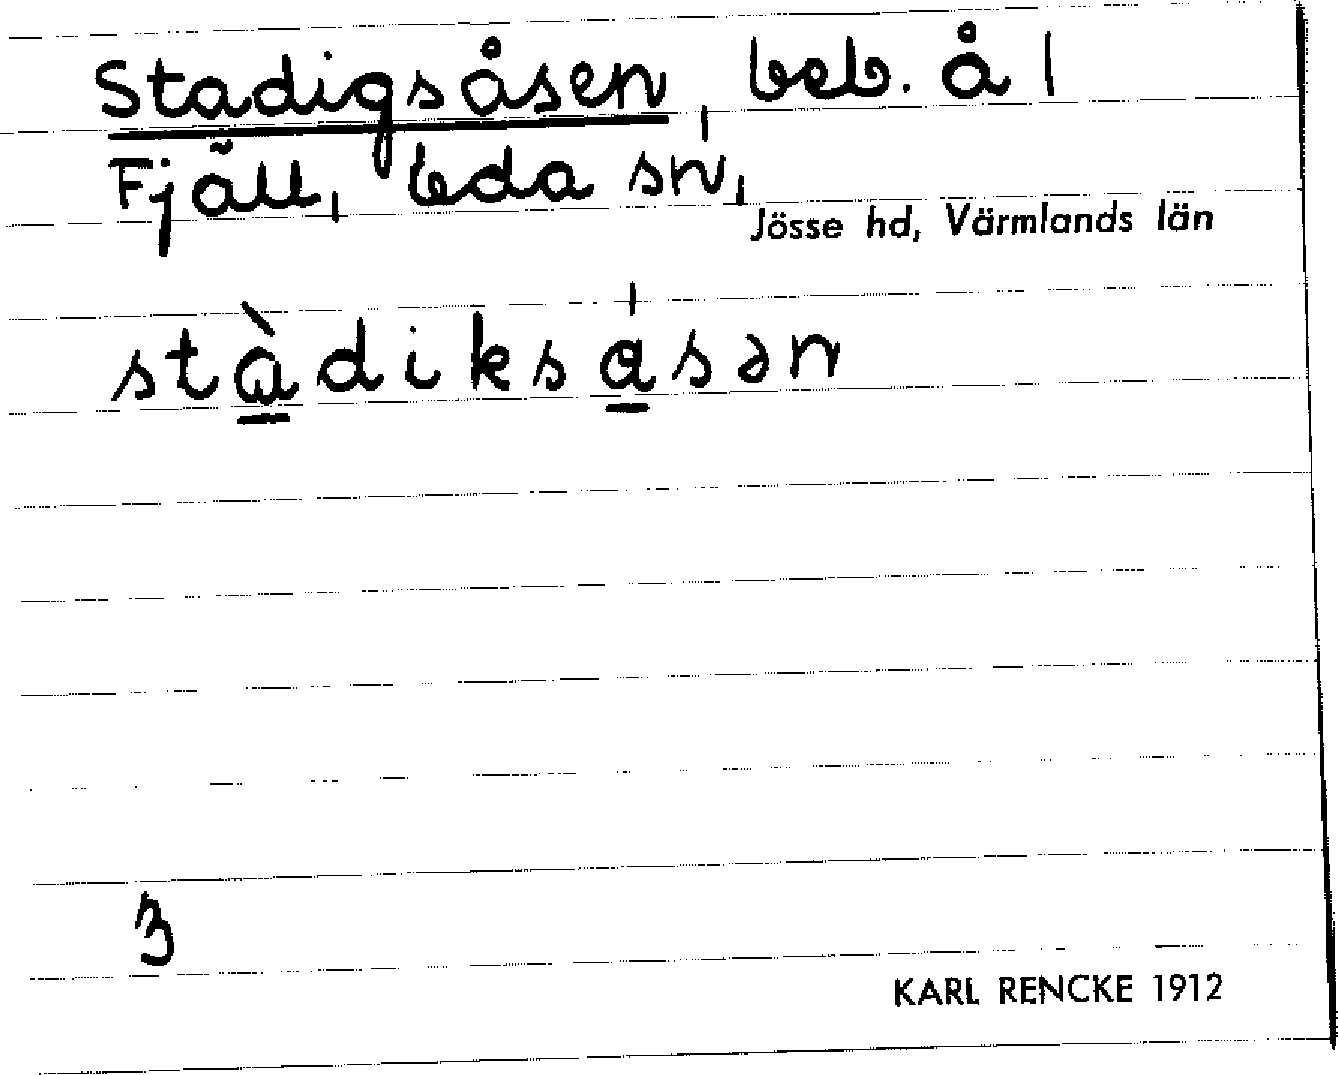 Stadigsåsen, beb. å 1
Fjäll, Eda sn,
Jösse hd, Värmlands län
stàdiksasən
3
KARL RENCKE 1912